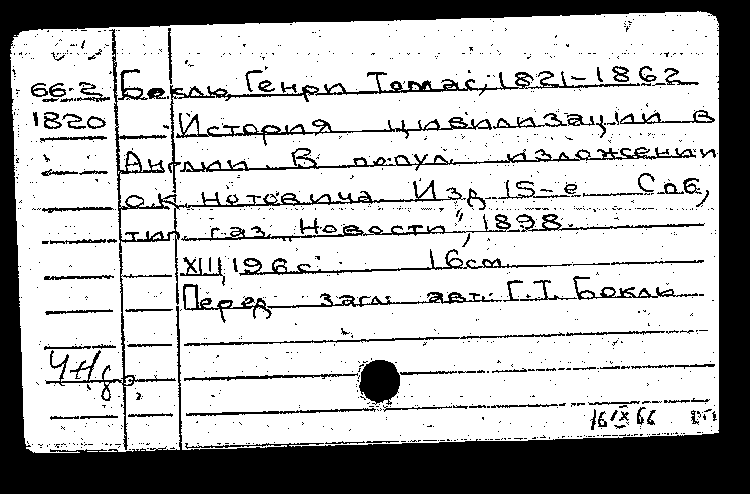 66-2 Бокль, Генри Томас, 1821-1862
1820 История цивилизации в
Англии. В попул. изложении
О.К. Нотовича. Изд 15-е Спб,
тип. газ. "Новости", 1898.
XIII, 196 с. 16см.
Перед загл. авт.: Г.Т. Бокль
16/IX 66